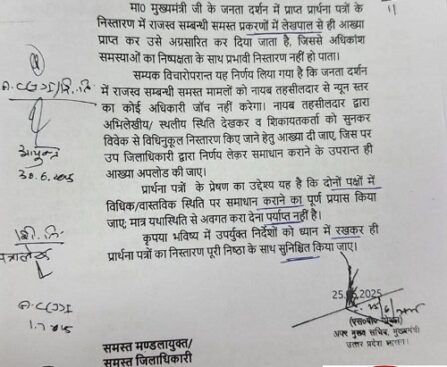 मा0 मुख्यमंत्री जी के जनता दर्शन में प्राप्त प्रार्थना पत्रों के
निस्तारण में राजस्व सम्बन्धी समस्त प्रकरणों में लेखपाल से ही आख्या
प्राप्त कर उसे अग्रसारित कर दिया जाता है, जिससे अधिकांश
समस्याओं का निष्पक्षता के साथ प्रभावी निस्तारण नहीं हो पाता।
सम्यक विचारोपरान्त यह निर्णय लिया गया है कि जनता दर्शन
में राजस्व सम्बन्धी समस्त मामलों को नायब तहसीलदार से न्यून स्तर
का कोई अधिकारी जाँच नहीं करेगा। नायब तहसीलदार द्वारा
अभिलेखीय/ स्थलीय स्थिति देखकर व शिकायतकर्ता को सुनकर
विवेक से विधिनुकूल निस्तारण किए जाने हेतु आख्या दी जाए, जिस पर
उप जिलाधिकारी द्वारा निर्णय लेकर समाधान कराने के उपरान्त ही
आख्या अपलोड की जाए।
प्रार्थना पत्रों के प्रेषण का उद्देश्य यह है कि दोनों पक्षों में
विधिक/वास्तविक स्थिति पर समाधान कराने का पूर्ण प्रयास किया
जाए; मात्र यथास्थिति से अवगत करा देना पर्याप्त नहीं है।
कृपया भविष्य में उपर्युक्त निर्देशों को ध्यान में रखकर ही
प्रार्थना पत्रों का निस्तारण पूरी निष्ठा के साथ सुनिश्चित किया जाए।
30.6.2025
25 2025
अपर मुख्य सचिव, मुख्यमंत्री
उत्तर प्रदेश शासन।
समस्त मण्डलायुक्त/
समस्त जिलाधिकारी